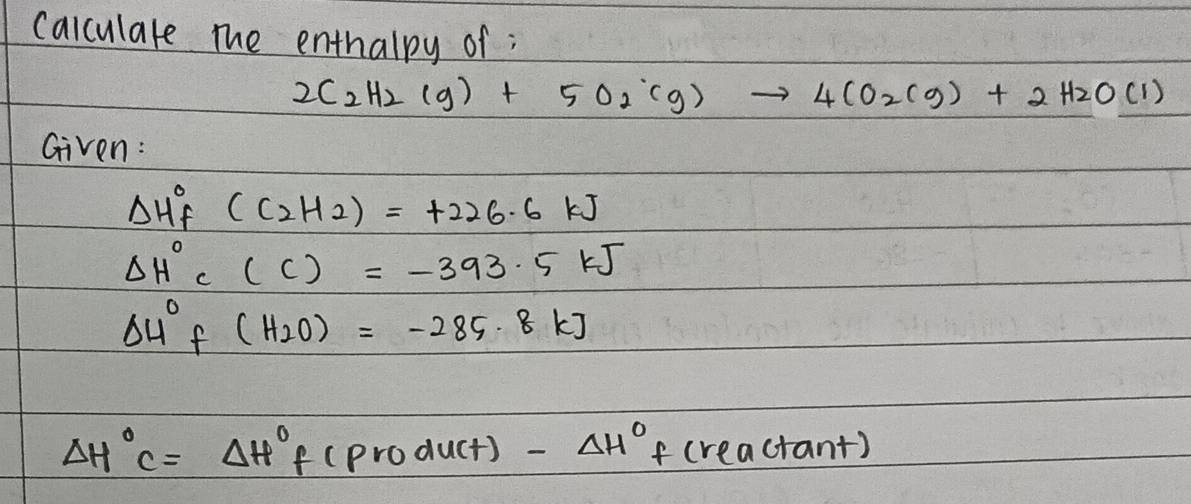 Calculate the enthalpy of :
2C2H2 (g) + 5O2 (g) → 4CO2(g) + 2H2O(l)
Given :
ΔH°f (C2H2) = +226.6 kJ
ΔH°c (C) = -393.5 kJ
ΔH°f (H2O) = -285.8 kJ
ΔH°c = ΔH°f (product) - ΔH°f (reactant)